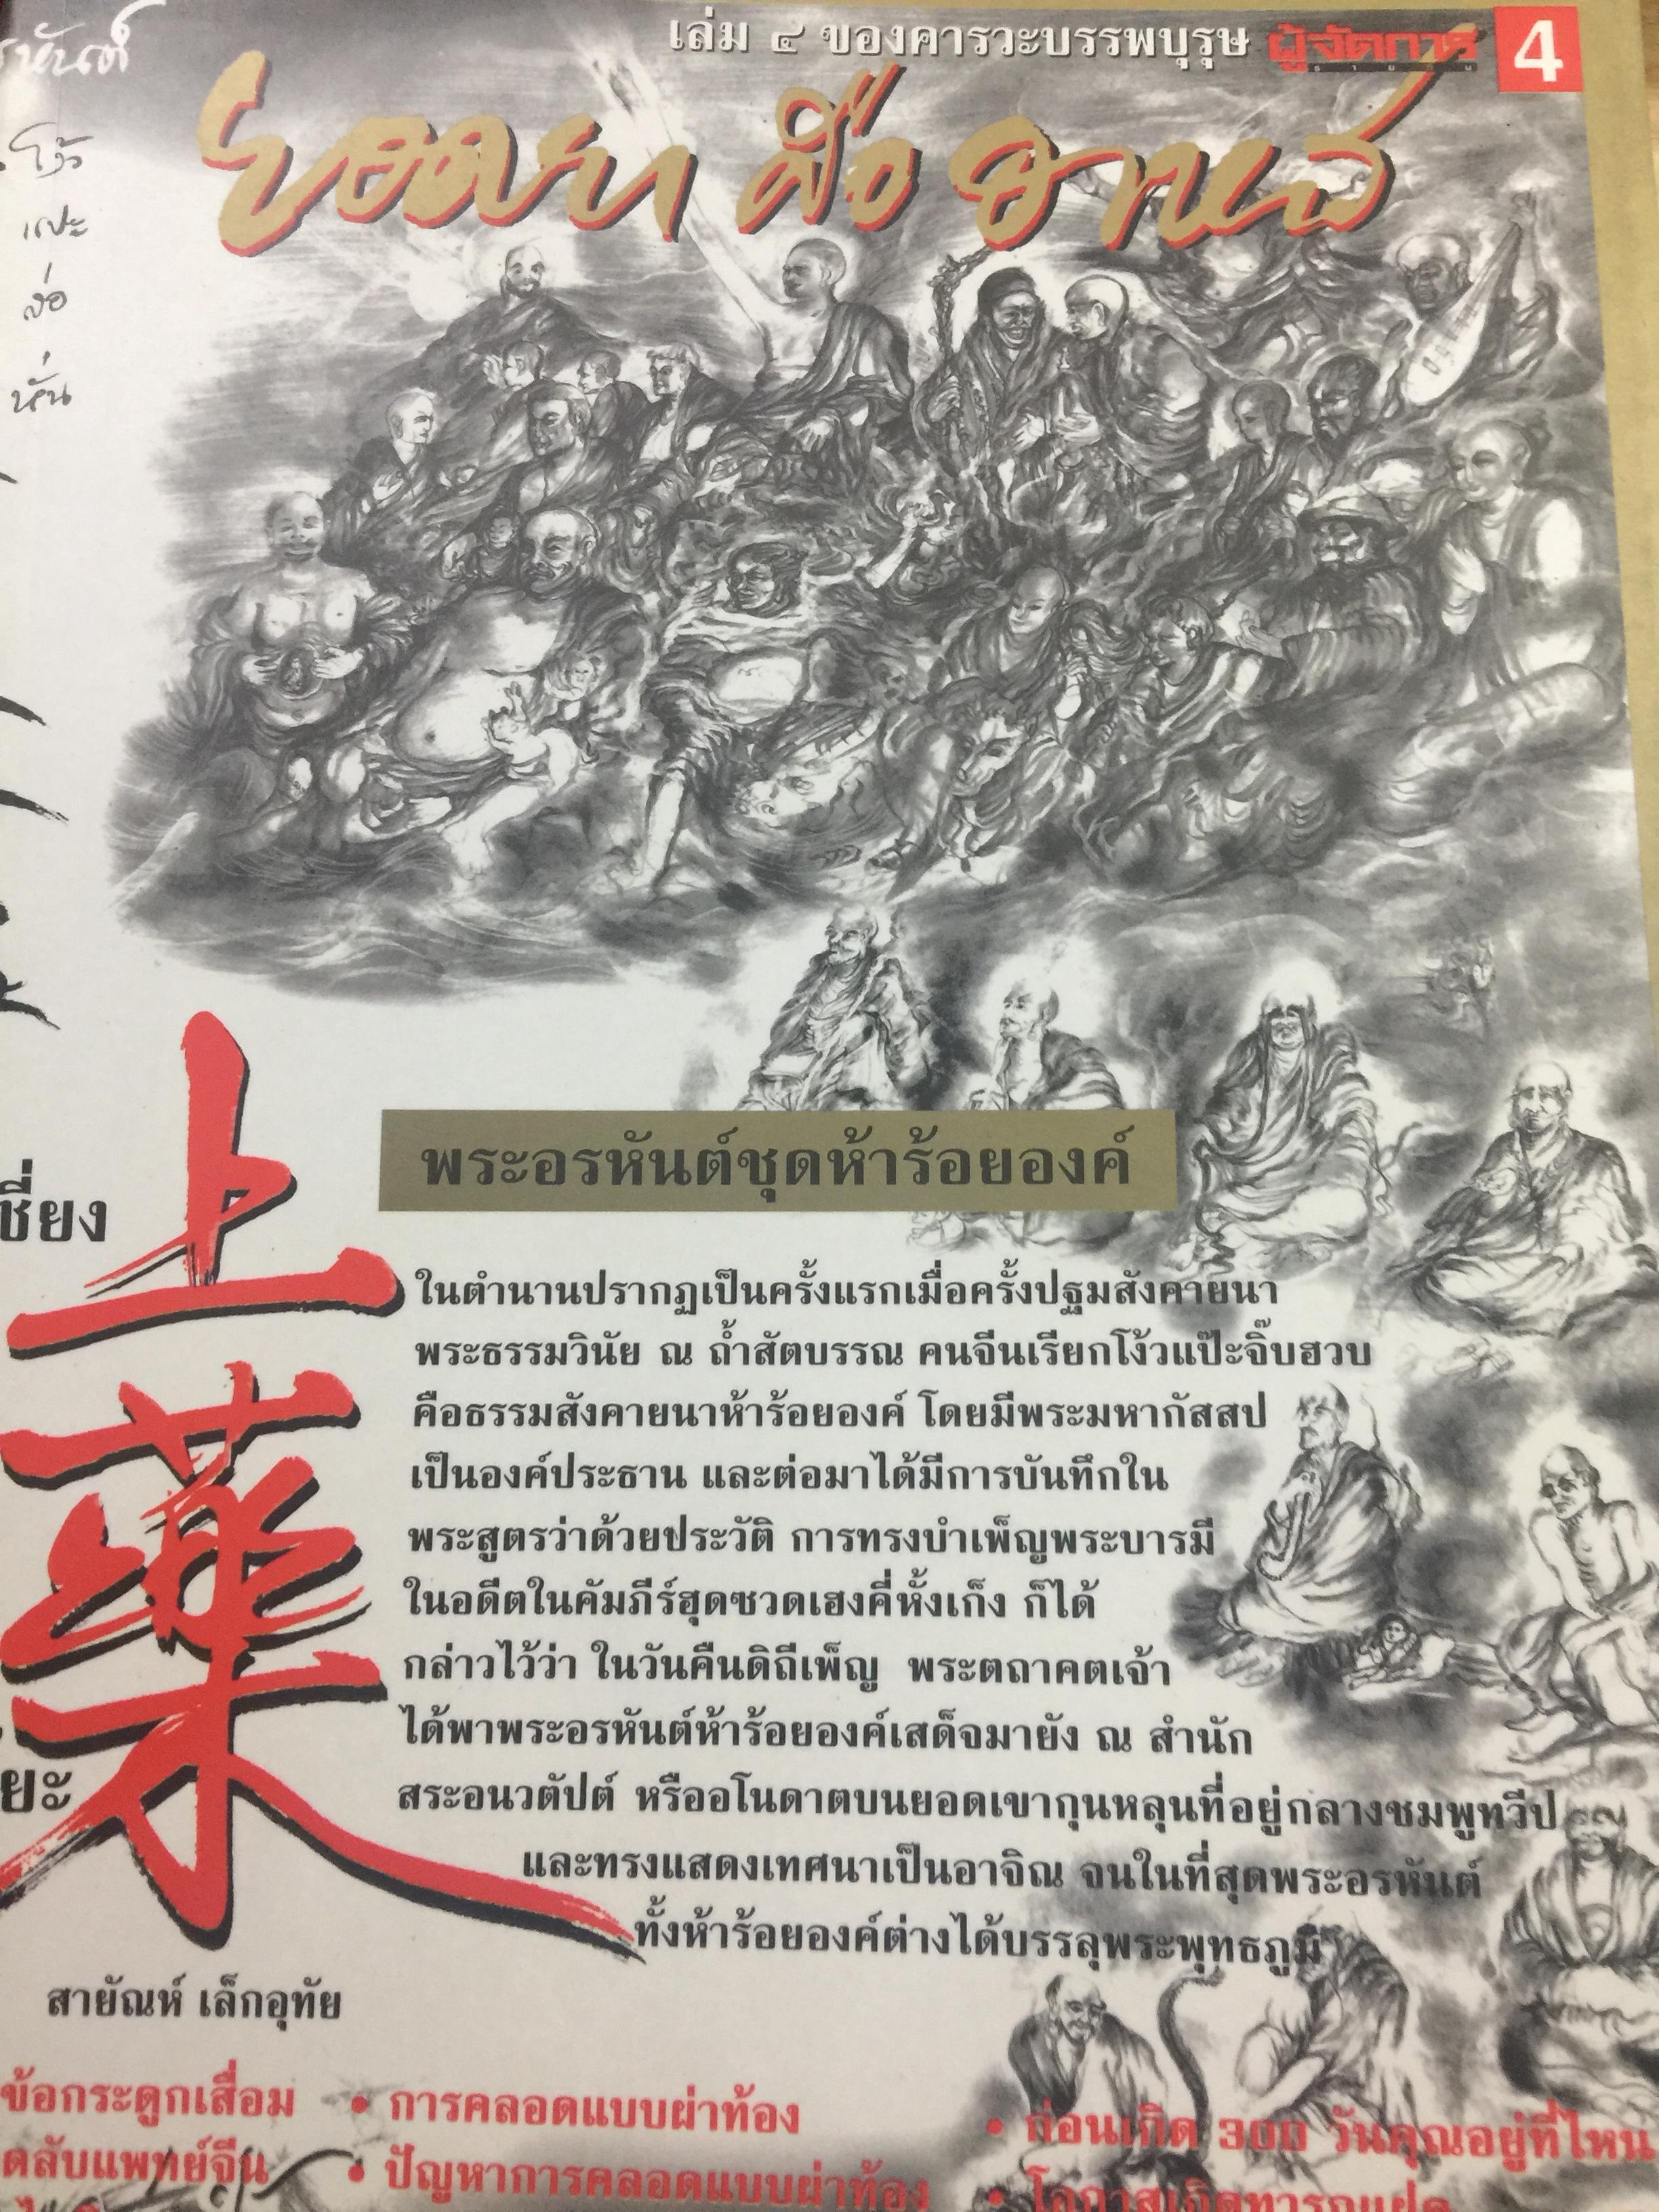 เล่ม ๔ ของคารวะบรรพบุรุษ ผู้จัดการ 4
รายวัน
ยอดยา คือ อาหาร
รหันต์
โง้ว
แปะ
ล่อ
หั่น
上藥
เชี่ยง
ยะ
พระอรหันต์ชุดห้าร้อยองค์
ในตำนานปรากฏเป็นครั้งแรกเมื่อครั้งปฐมสังคายนา
พระธรรมวินัย ณ ถ้ำสัตบรรณ คนจีนเรียกโง้วแป๊ะจิ๊บฮวบ
คือธรรมสังคายนาห้าร้อยองค์ โดยมีพระมหากัสสป
เป็นองค์ประธาน และต่อมาได้มีการบันทึกใน
พระสูตรว่าด้วยประวัติ การทรงบำเพ็ญพระบารมี
ในอดีตในคัมภีร์ฮุดซวดเฮงคี่หั้งเก็ง ก็ได้
กล่าวไว้ว่า ในวันคืนดิถีเพ็ญ พระตถาคตเจ้า
ได้พาพระอรหันต์ห้าร้อยองค์เสด็จมายัง ณ สำนัก
สระอนวตัปต์ หรืออโนดาตบนยอดเขากุนหลุนที่อยู่กลางชมพูทวีป
และทรงแสดงเทศนาเป็นอาจิณ จนในที่สุดพระอรหันต์
ทั้งห้าร้อยองค์ต่างได้บรรลุพระพุทธภูมิ
สายัณห์ เล็กอุทัย
ข้อกระดูกเสื่อม
ดลับแพทย์จีน
• การคลอดแบบผ่าท้อง
• ปัญหาการคลอดแบบผ่าท้อง
• ก่อนเกิด 300 วันคุณอยู่ที่ไหน
• โอกาสเกิดทารกแฝด